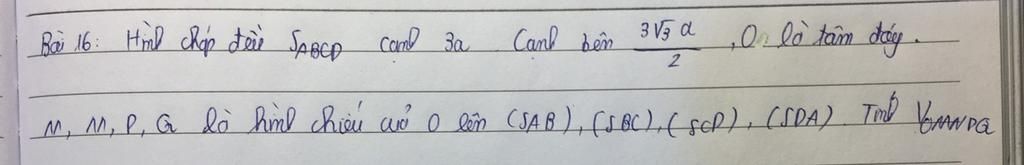 Bài 16: Hình chóp đều SABCD cạnh 3a Cạnh bên 3√3 a / 2 , O là tâm đáy.
M, N, P, Q là hình chiếu của O lên (SAB), (SBC), (SCD), (SDA). Tính VOMNPQ